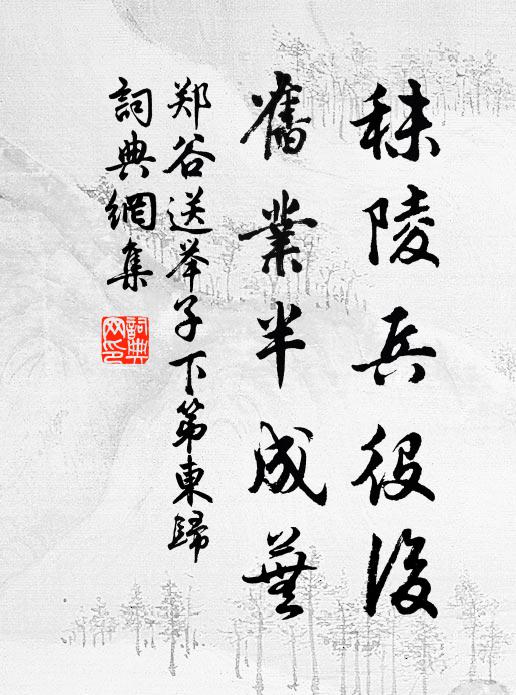 秣陵兵役後
舊業半成蕪
郑谷送举子下第東歸
詞典網集
詞典網印